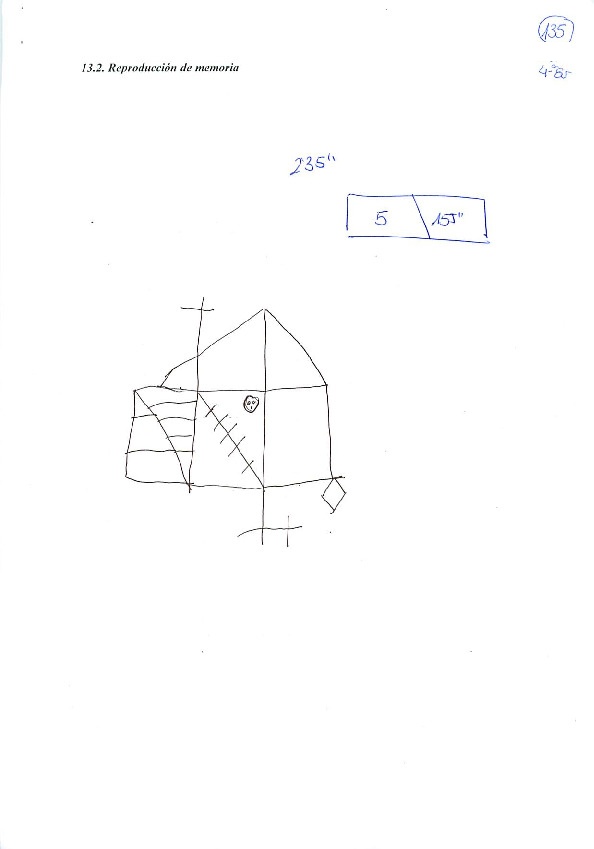 135
13.2. Reproducción de memoria
235"
5
155"